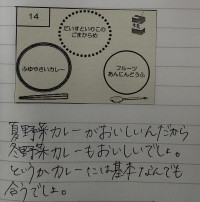 14
だいずといりこの
ごまがらめ
ふゆやさいカレー
フルーツ
あんにんどうふ
夏野菜カレーがおいしいんだから
冬野菜カレーもおいしいでしょ。
というかカレーには基本なんでも
合うでしょ。